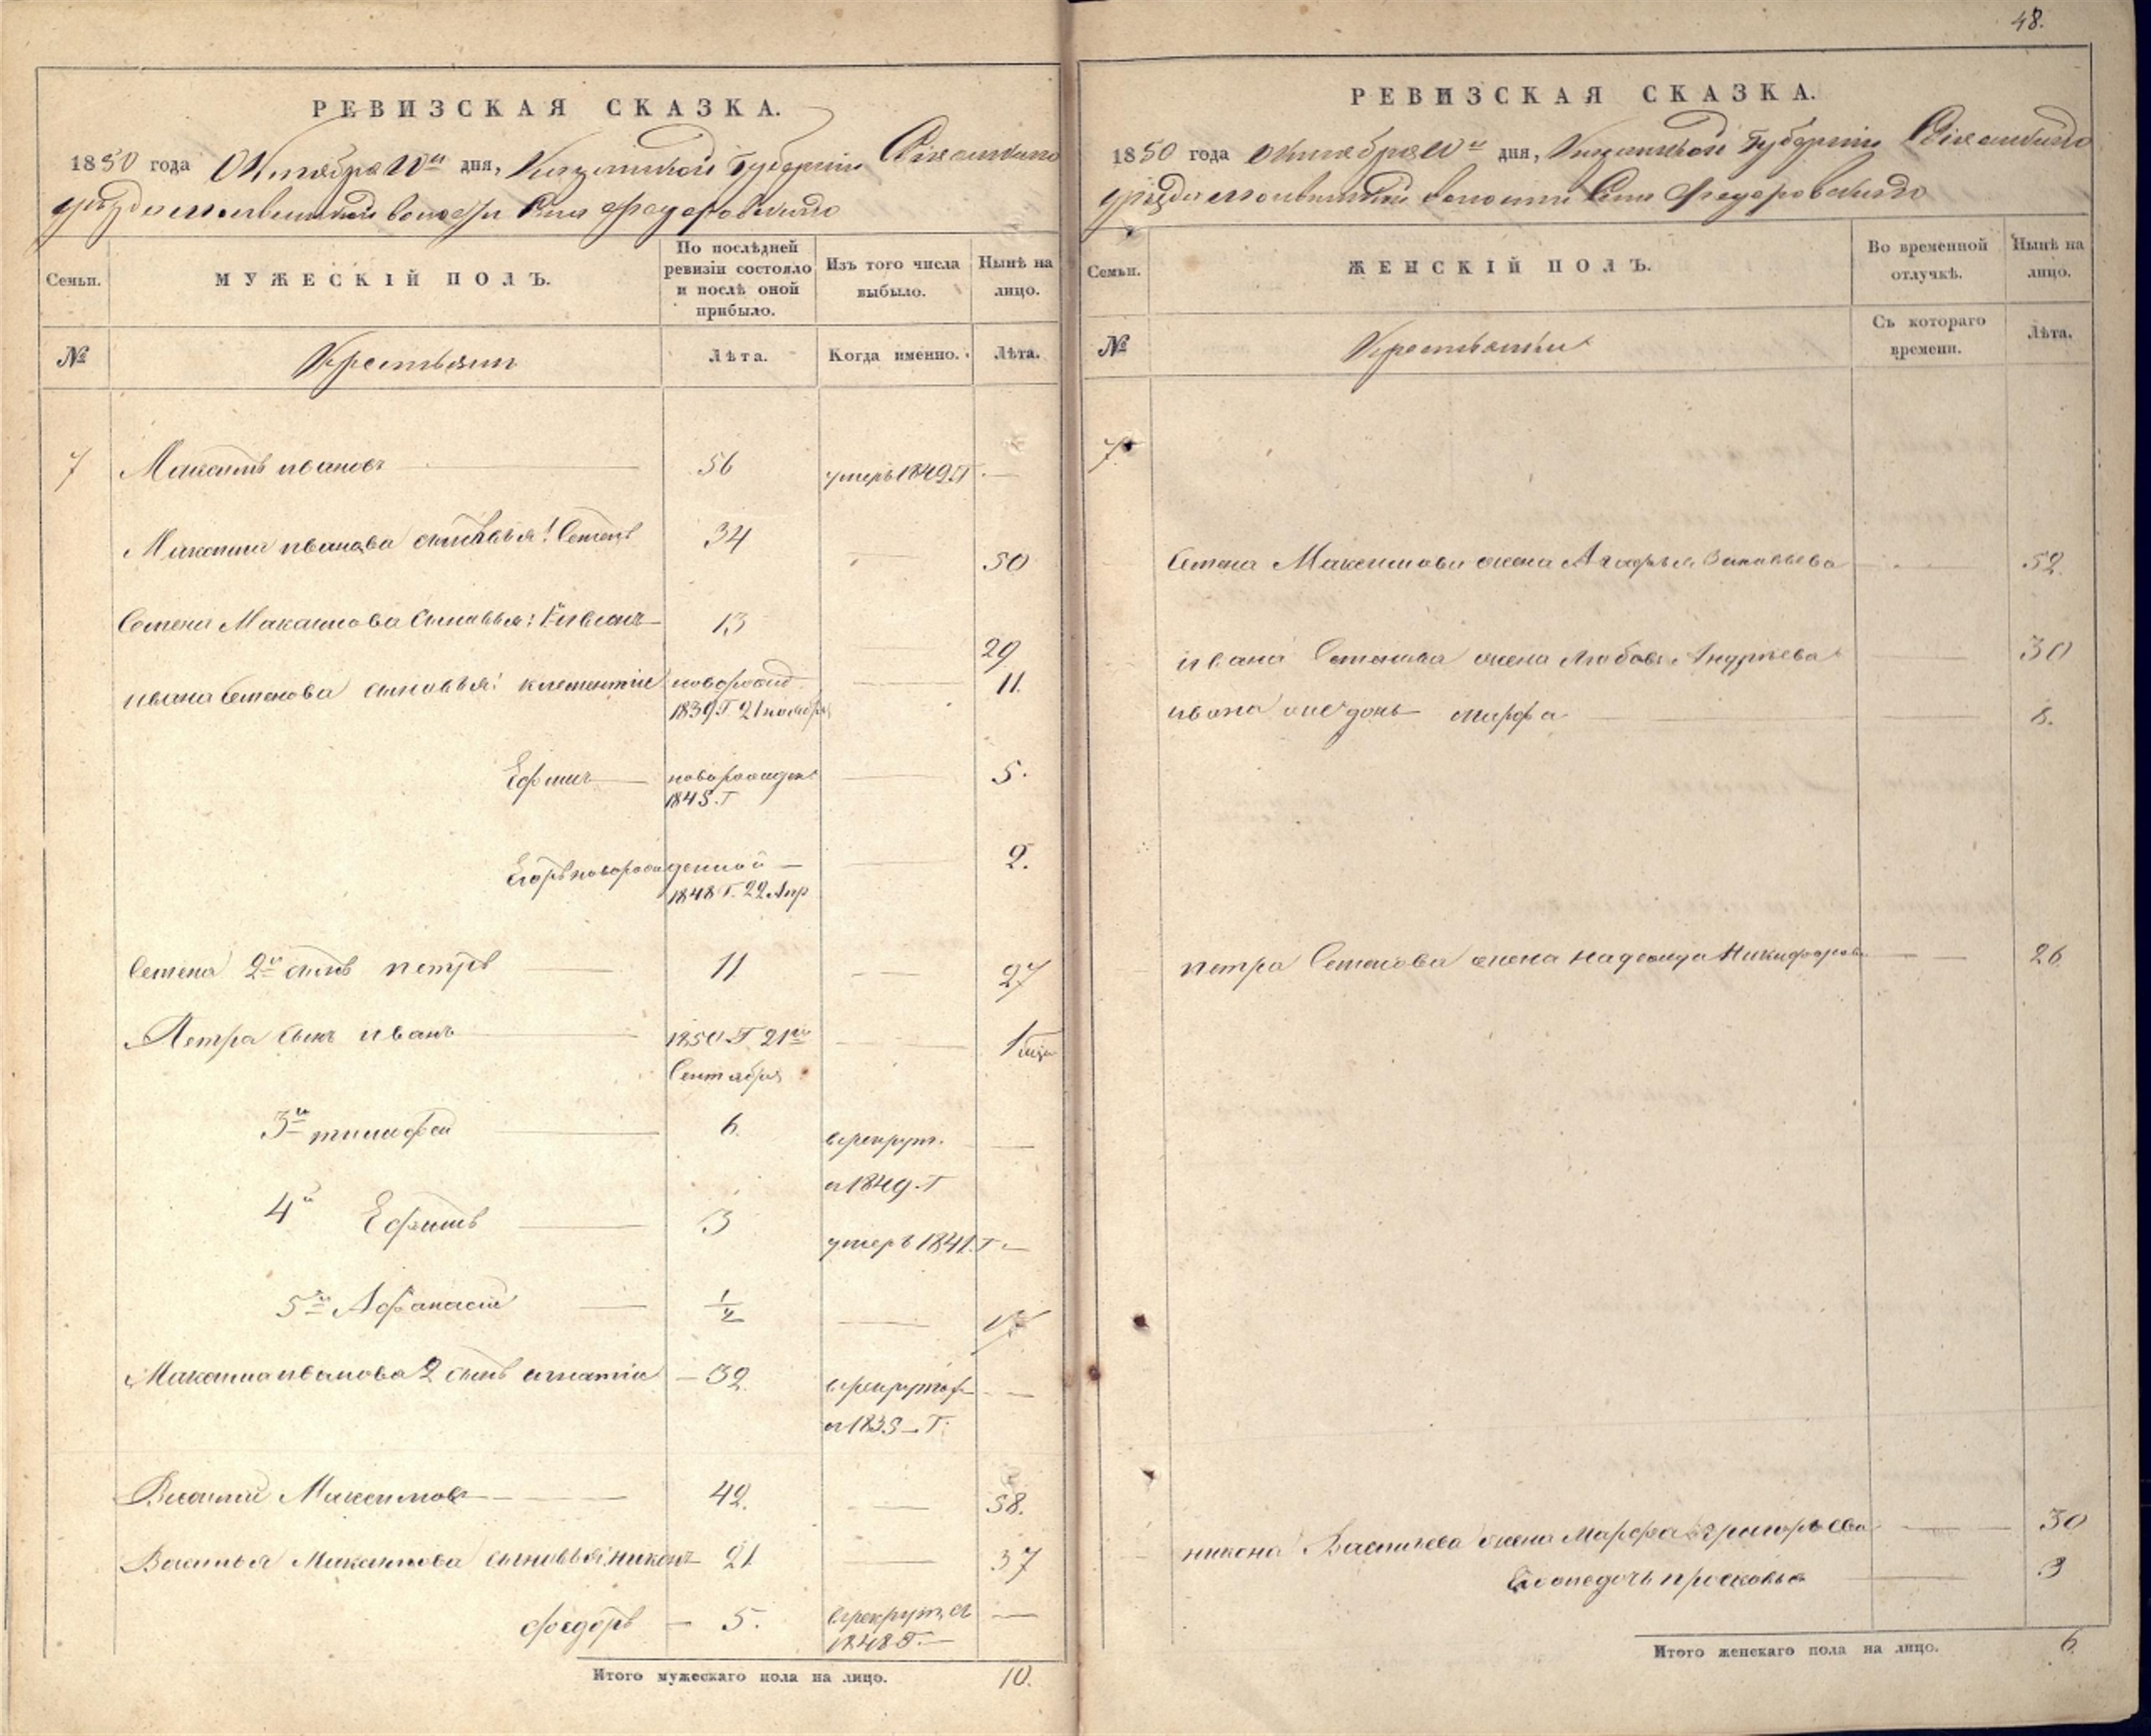 48.
РЕВИЗСКАЯ СКАЗКА.
1850 года Октября 10го дня, Казанской Губернии
уезда волости Села Федоровского
Семьи.
МУЖЕСКІЙ ПОЛЪ.
По послѣдней ревизіи состояло и послѣ оной прибыло.
Изъ того числа выбыло.
Нынѣ на лицо.
№
Крестьяни
Лѣта.
Когда именно.
Лѣта.
7 Максимъ ивановъ 56 умеръ 1849 Г. —
Максима иванова сыновья: Семенъ 34 — 50
Семена Максимова сыновья: иванъ 13 — 29
ивана Семенова сыновья: клементии новорожд. — 11.
1839 Г. 21 ноября
Ефимъ — новорожден — 5.
1845. Г
Егоръ новорожденной — 2.
1848 Г. 22 Апр
Семена 2й сынъ петръ — 11 — 27
Петра сынъ иванъ — 1850 Г 21го — 1
Сентября
3й тимофей — 6. в рекрут. —
1849. Г
4й Ефимъ — 3 умеръ 1841. Г. —
5й Афанасій — 1/2 —
Максима иванова 2 сынъ игнатіи — 32. в рекрут —
1835 Г.
Василий Максимовъ — 42. — 58.
Василья Максимова сыновья: никонъ 21 — 37
федоръ — 5. в рекрут —
1848 Г. —
Итого мужескаго пола на лицо. 10.
РЕВИЗСКАЯ СКАЗКА.
1850 года Октября 10го дня, Казанской Губернии
уезда волости Села Федоровского
Семьи.
ЖЕНСКІЙ ПОЛЪ.
Во временной отлучкѣ.
Нынѣ на лицо.
№
Крестьянки
Съ котораго времени.
Лѣта.
7
Семена Максимова жена Агафья Зиновьева — 52.
ивана Семенова жена Любовь Андреева — 30
ивана же дочь марфа — 8.
петра Семенова жена надежда Никифорова — 26
никона Васильева жена Марфа григорьева — 30
Его же дочь просковья — 3
Итого женскаго пола на лицо. 6.